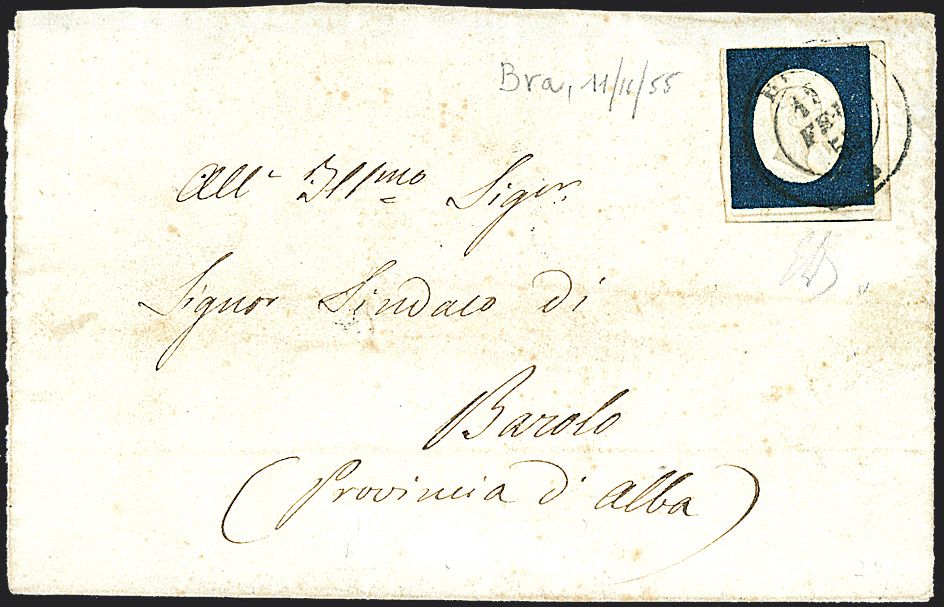 Bra, 11/II/55
12
FEB
All' Illmo Sigr.
Signor Sindaco di
Barolo
(Provincia d'Alba)